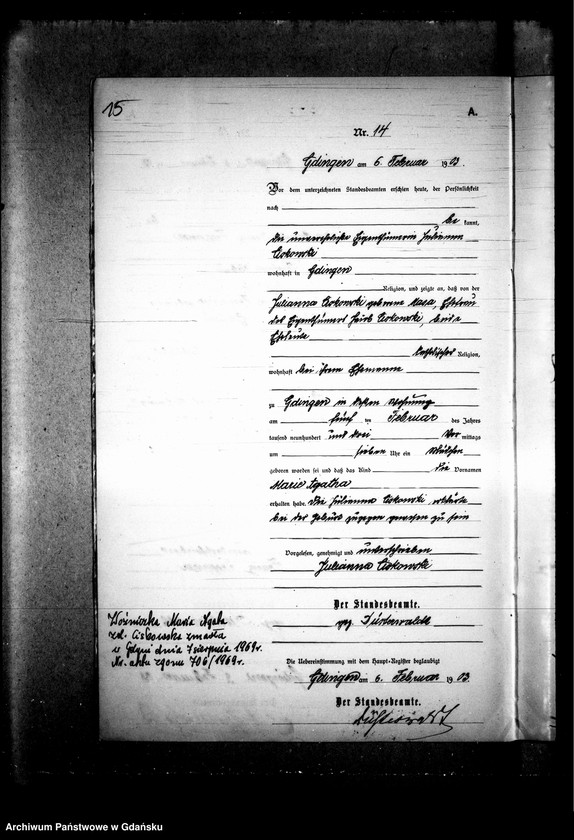 15
A.
Nr. 14
Gdingen am 6. Februar 1903.
Vor dem unterzeichneten Standesbeamten erschien heute, der Persönlichkeit
nach
be kannt,
die unverehelichte Eigenthümerin Julianna
Ciskowski
wohnhaft in Gdingen
Religion, und zeigte an, daß von der
Julianna Ciskowski geborene Kasa, Ehefrau
des Eigenthümers Jacob Ciskowski, beide
Eheleute
katholischer Religion,
wohnhaft bei ihrem Ehemanne
zu Gdingen in dessen Wohnung
am fünf ten Februar des Jahres
tausend neunhundert und drei Vor mittags
um sieben Uhr ein Mädchen
geboren worden sei und daß das Kind die Vornamen
Marie Agatha
erhalten habe. Die Julianna Ciskowski erklärte
bei der Geburt zugegen gewesen zu sein
Vorgelesen, genehmigt und unterschrieben
Julianna Ciskowski
Der Standesbeamte.
gez. Düsterwald
Maria Agata
zd. Ciskowska zmarła
w Gdyni dnia 7 sierpnia 1969r.
Nr. aktu zgonu 706/1969r.
Die Uebereinstimmung mit dem Haupt-Register beglaubigt
Gdingen am 6. Februar 1903.
Der Standesbeamte.
Düsterwald
Archiwum Państwowe w Gdańsku